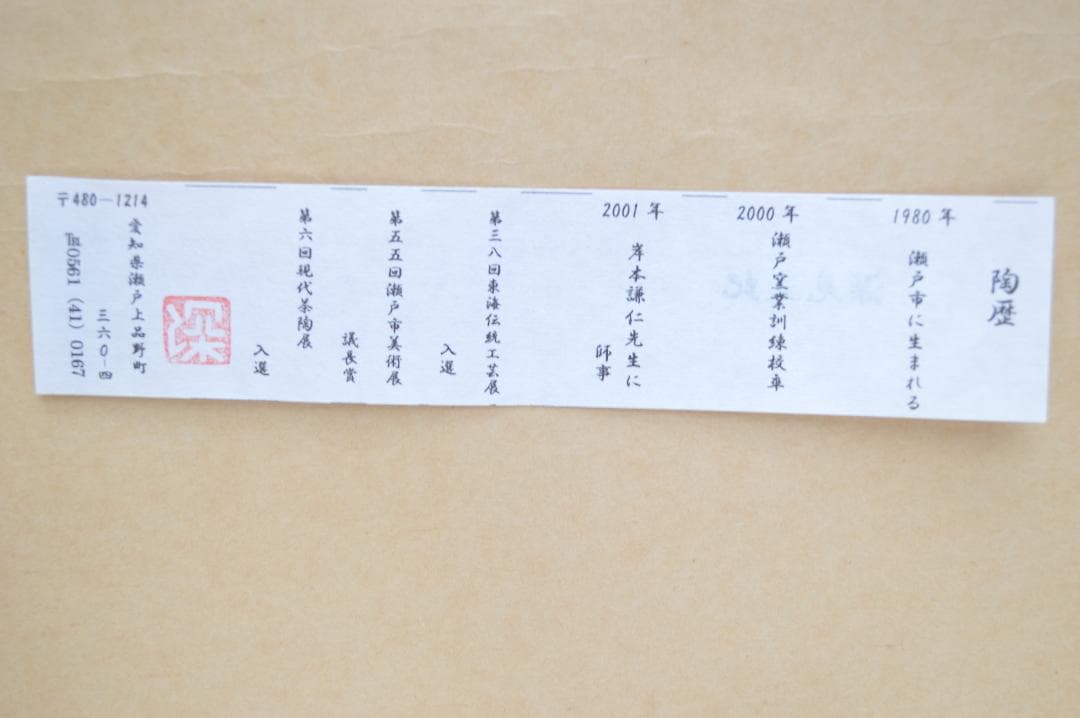 陶歴
1980年
瀬戸市に生まれる
2000年
瀬戸窯業訓練校卒
2001年
岸本謙仁先生に
師事
第三八回東海伝統工芸展
入選
第五五回瀬戸市美術展
議長賞
第六回現代茶陶展
入選
愛知県瀬戸上品野町
三六〇-四
〒480-1214
℡0561(41)0167